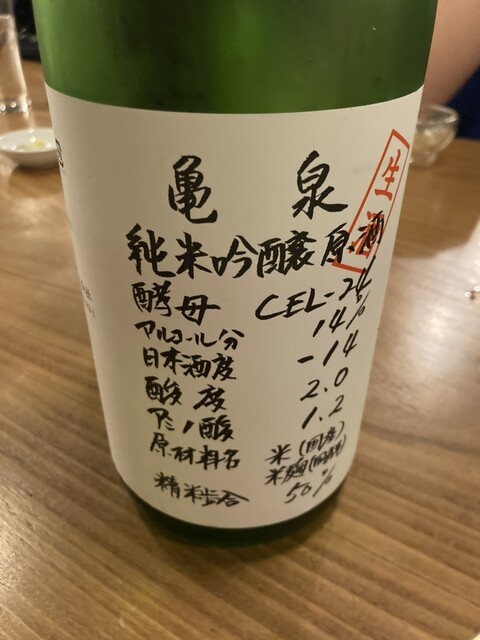 亀泉
純米吟醸原酒
生酒
酵母 CEL-24
アルコール分 14%
日本酒度 -14
酸度 2.0
アミノ酸 1.2
原材料名 米(国産)
米麹(国産米)
精米歩合 50%